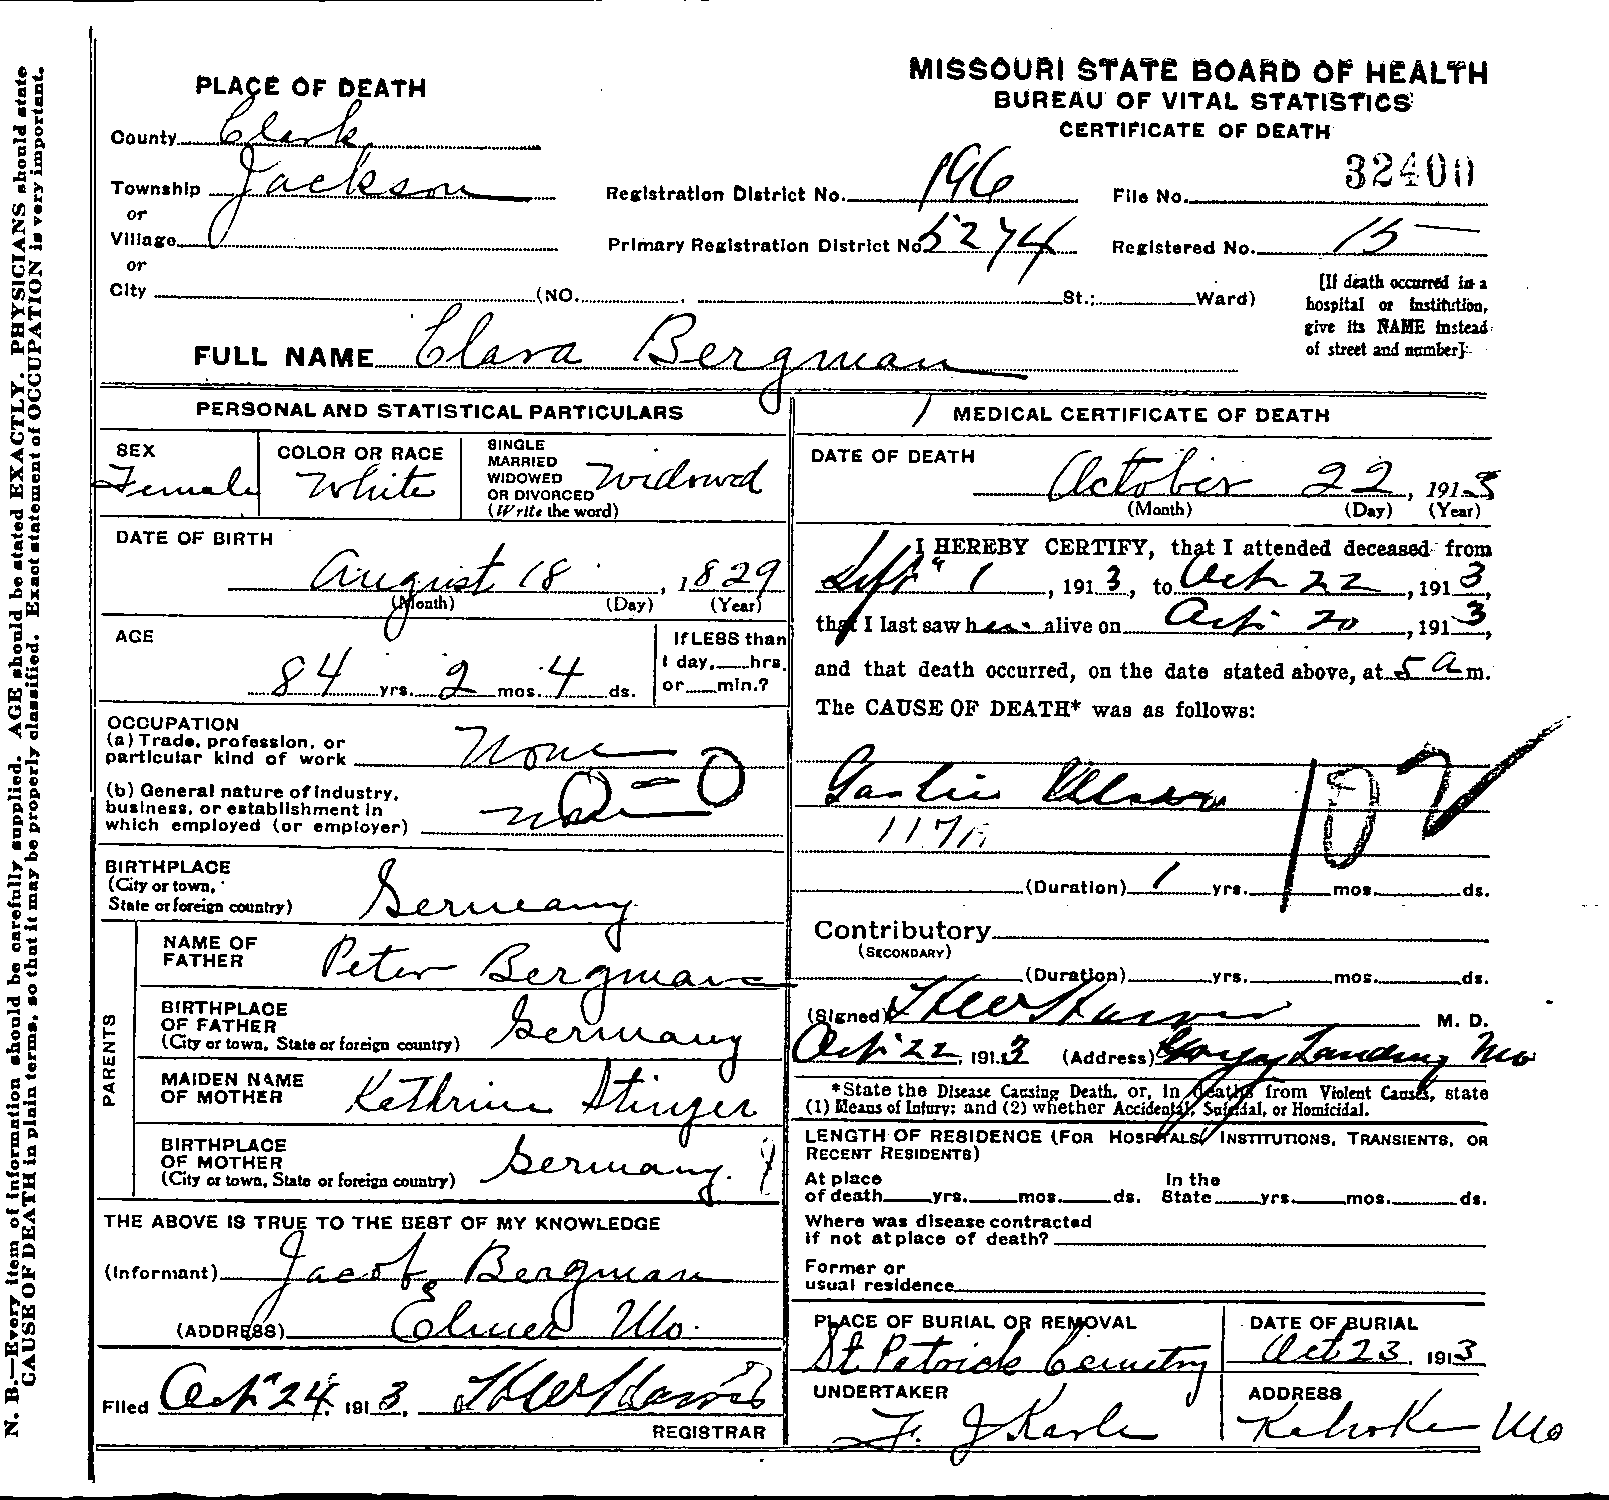 MISSOURI STATE BOARD OF HEALTH
BUREAU OF VITAL STATISTICS
CERTIFICATE OF DEATH
PLACE OF DEATH
County Clark
Township Jackson
or
Village
or
City (NO. St.; Ward)
Registration District No. 196
File No. 32400
Primary Registration District No. 5274
Registered No. 15
[If death occurred in a
hospital or institution,
give its NAME instead
of street and number]
FULL NAME Clara Bergman
PERSONAL AND STATISTICAL PARTICULARS
SEX
Female
COLOR OR RACE
White
SINGLE
MARRIED
WIDOWED
OR DIVORCED
(Write the word)
Widowed
DATE OF BIRTH
August 18, 1829
(Month) (Day) (Year)
AGE
84 yrs. 2 mos. 4 ds.
If LESS than
1 day, hrs.
or min.?
OCCUPATION
(a) Trade, profession, or
particular kind of work None
(b) General nature of industry,
business, or establishment in
which employed (or employer)
0-0
BIRTHPLACE
(City or town,
State or foreign country) Germany
PARENTS
NAME OF
FATHER Peter Bergman
BIRTHPLACE
OF FATHER
(City or town, State or foreign country) Germany
MAIDEN NAME
OF MOTHER Kathrine Stinger
BIRTHPLACE
OF MOTHER
(City or town, State or foreign country) Germany.
THE ABOVE IS TRUE TO THE BEST OF MY KNOWLEDGE
(Informant) Jacob Bergman
(ADDRESS) Elmer Mo.
Filed Oct 24, 1913,
REGISTRAR
MEDICAL CERTIFICATE OF DEATH
DATE OF DEATH
October 22, 1913
(Month) (Day) (Year)
I HEREBY CERTIFY, that I attended deceased from
Sept 1, 1913, to Oct 22, 1913,
that I last saw her alive on Oct. 20, 1913,
and that death occurred, on the date stated above, at 5 a m.
The CAUSE OF DEATH* was as follows:
102
117
(Duration) 1 yrs. mos. ds.
Contributory
(SECONDARY)
(Duration) yrs. mos. ds.
(Signed) M. D.
Oct 22, 1913 (Address) Landing Mo
*State the Disease Causing Death, or, in deaths from Violent Causes, state
(1) Means of Injury; and (2) whether Accidental, Suicidal, or Homicidal.
LENGTH OF RESIDENCE (FOR HOSPITALS, INSTITUTIONS, TRANSIENTS, OR
RECENT RESIDENTS)
At place
of death yrs. mos. ds.
In the
State yrs. mos. ds.
Where was disease contracted
if not at place of death?
Former or
usual residence
PLACE OF BURIAL OR REMOVAL
St Patrick Cemetry
DATE OF BURIAL
Oct 23, 1913
UNDERTAKER
F. J Karle
ADDRESS
Kahoka Mo
N. B.—Every item of information should be carefully supplied. AGE should be stated EXACTLY. PHYSICIANS should state
CAUSE OF DEATH in plain terms, so that it may be properly classified. Exact statement of OCCUPATION is very important.